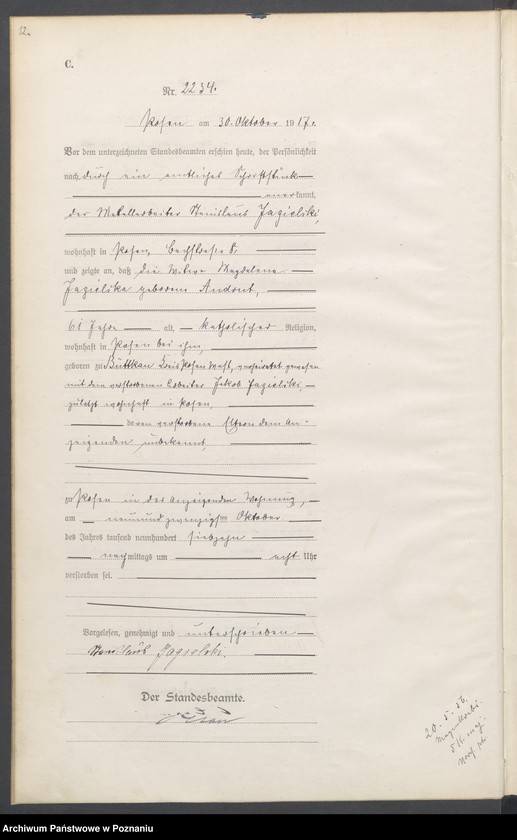 12.
C.
Nr. 2234.
Posen am 30. Oktober 1917.
Vor dem unterzeichneten Standesbeamten erschien heute, der Persönlichkeit
nach durch ein amtliches Schriftstück
anerkannt,
der Metallarbeiter Stanislaus Jagielski,
wohnhaft in Posen,
und zeigte an, daß die Witwe Magdalena
Jagielska geborene
61 Jahre alt, katholischer Religion,
wohnhaft in Posen bei ihm,
geboren zu Kreis Posen West, verheiratet gewesen
mit dem verstorbenen Arbeiter Jakob Jagielski,
zuletzt wohnhaft in Posen,
deren verstorbene Eltern dem An-
zeigenden unbekannt,
zu Posen in des Anzeigenden Wohnung,
am neunundzwanzigsten Oktober
des Jahres tausend neunhundert siebzehn
nachmittags um acht Uhr
verstorben sei.
Vorgelesen, genehmigt und unterschrieben
Stanislaus Jagielski.
Der Standesbeamte.
20. 5. 56.
Archiwum Państwowe w Poznaniu